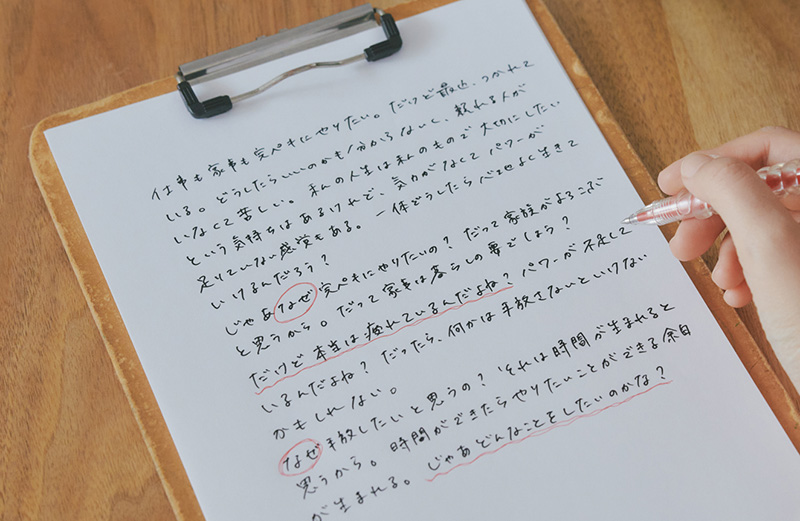 仕事も家事も完ペキにやりたい。だけど最近、つかれて
いる。どうしたらいいのかも分からないし、頼れる人が
いなくて苦しい。私の人生は私のもので大切にしたい
という気持ちはあるけれど、気力がなくてパワーが
足りていない感覚もある。一体どうしたら心地よく生きて
いけるんだろう？
じゃあなぜ完ペキにやりたいの？だって家族がよろこぶ
と思うから。だって家事は暮らしの要でしょう？
だけど本当は疲れているんだよね？パワーが不足して
いるんだよね？だったら、何かは手放さないといけない
かもしれない。
なぜ手放したいと思うの？それは時間が生まれると
思うから。時間ができたらやりたいことができる余白
が生まれる。じゃあどんなことをしたいのかな？